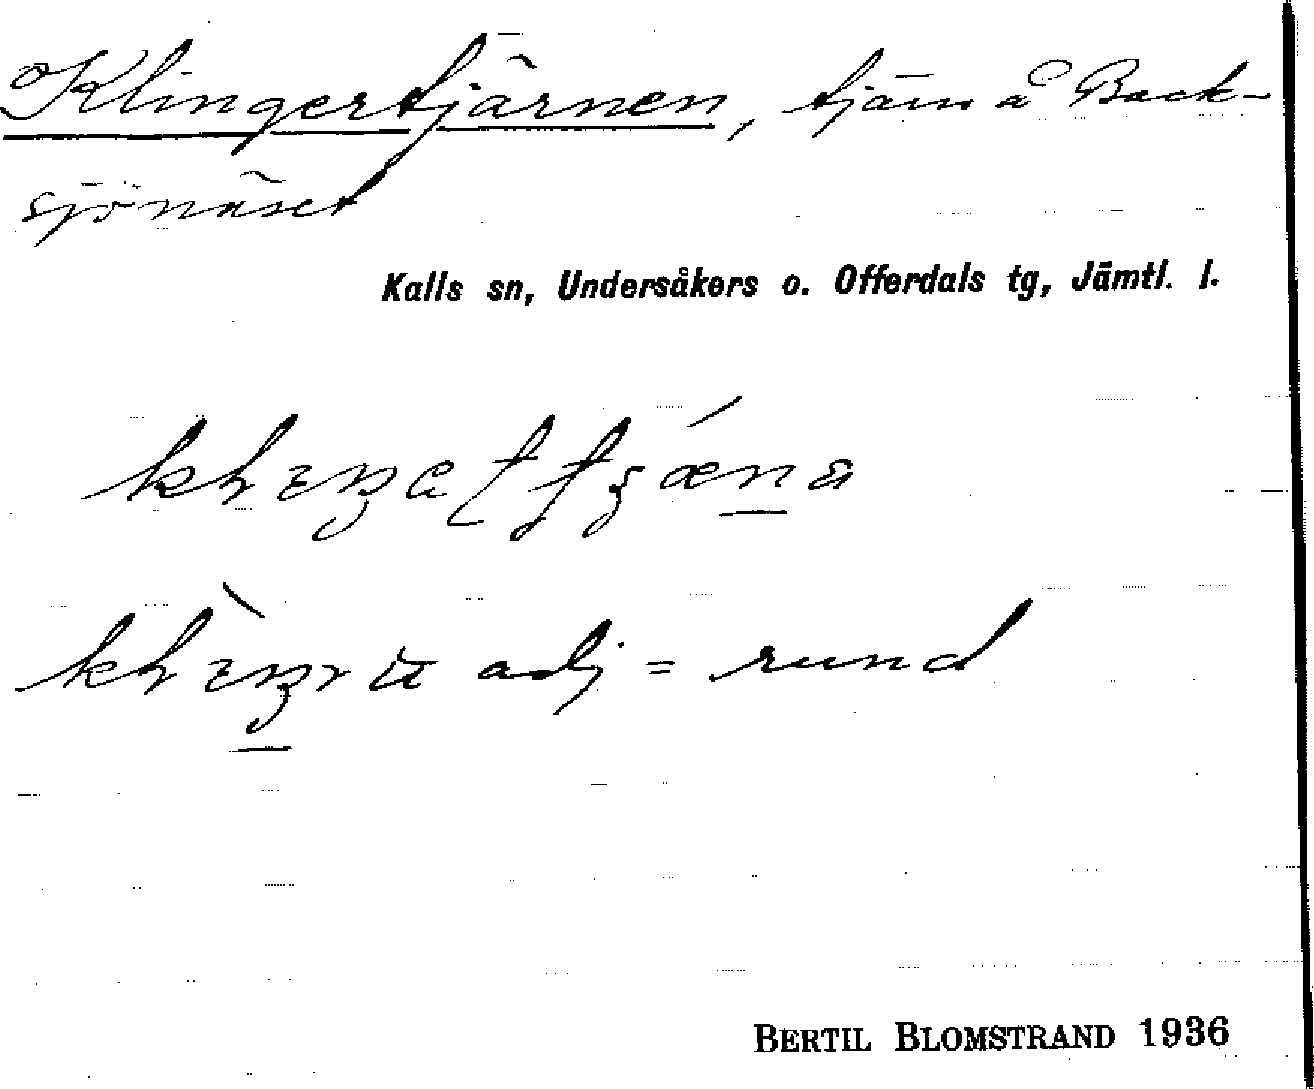 Klingertjärnen, tjärn å Back-
sjönäset
Kalls sn, Undersåkers o. Offerdals tg, Jämtl. l.
adj = rund
BERTIL BLOMSTRAND 1936